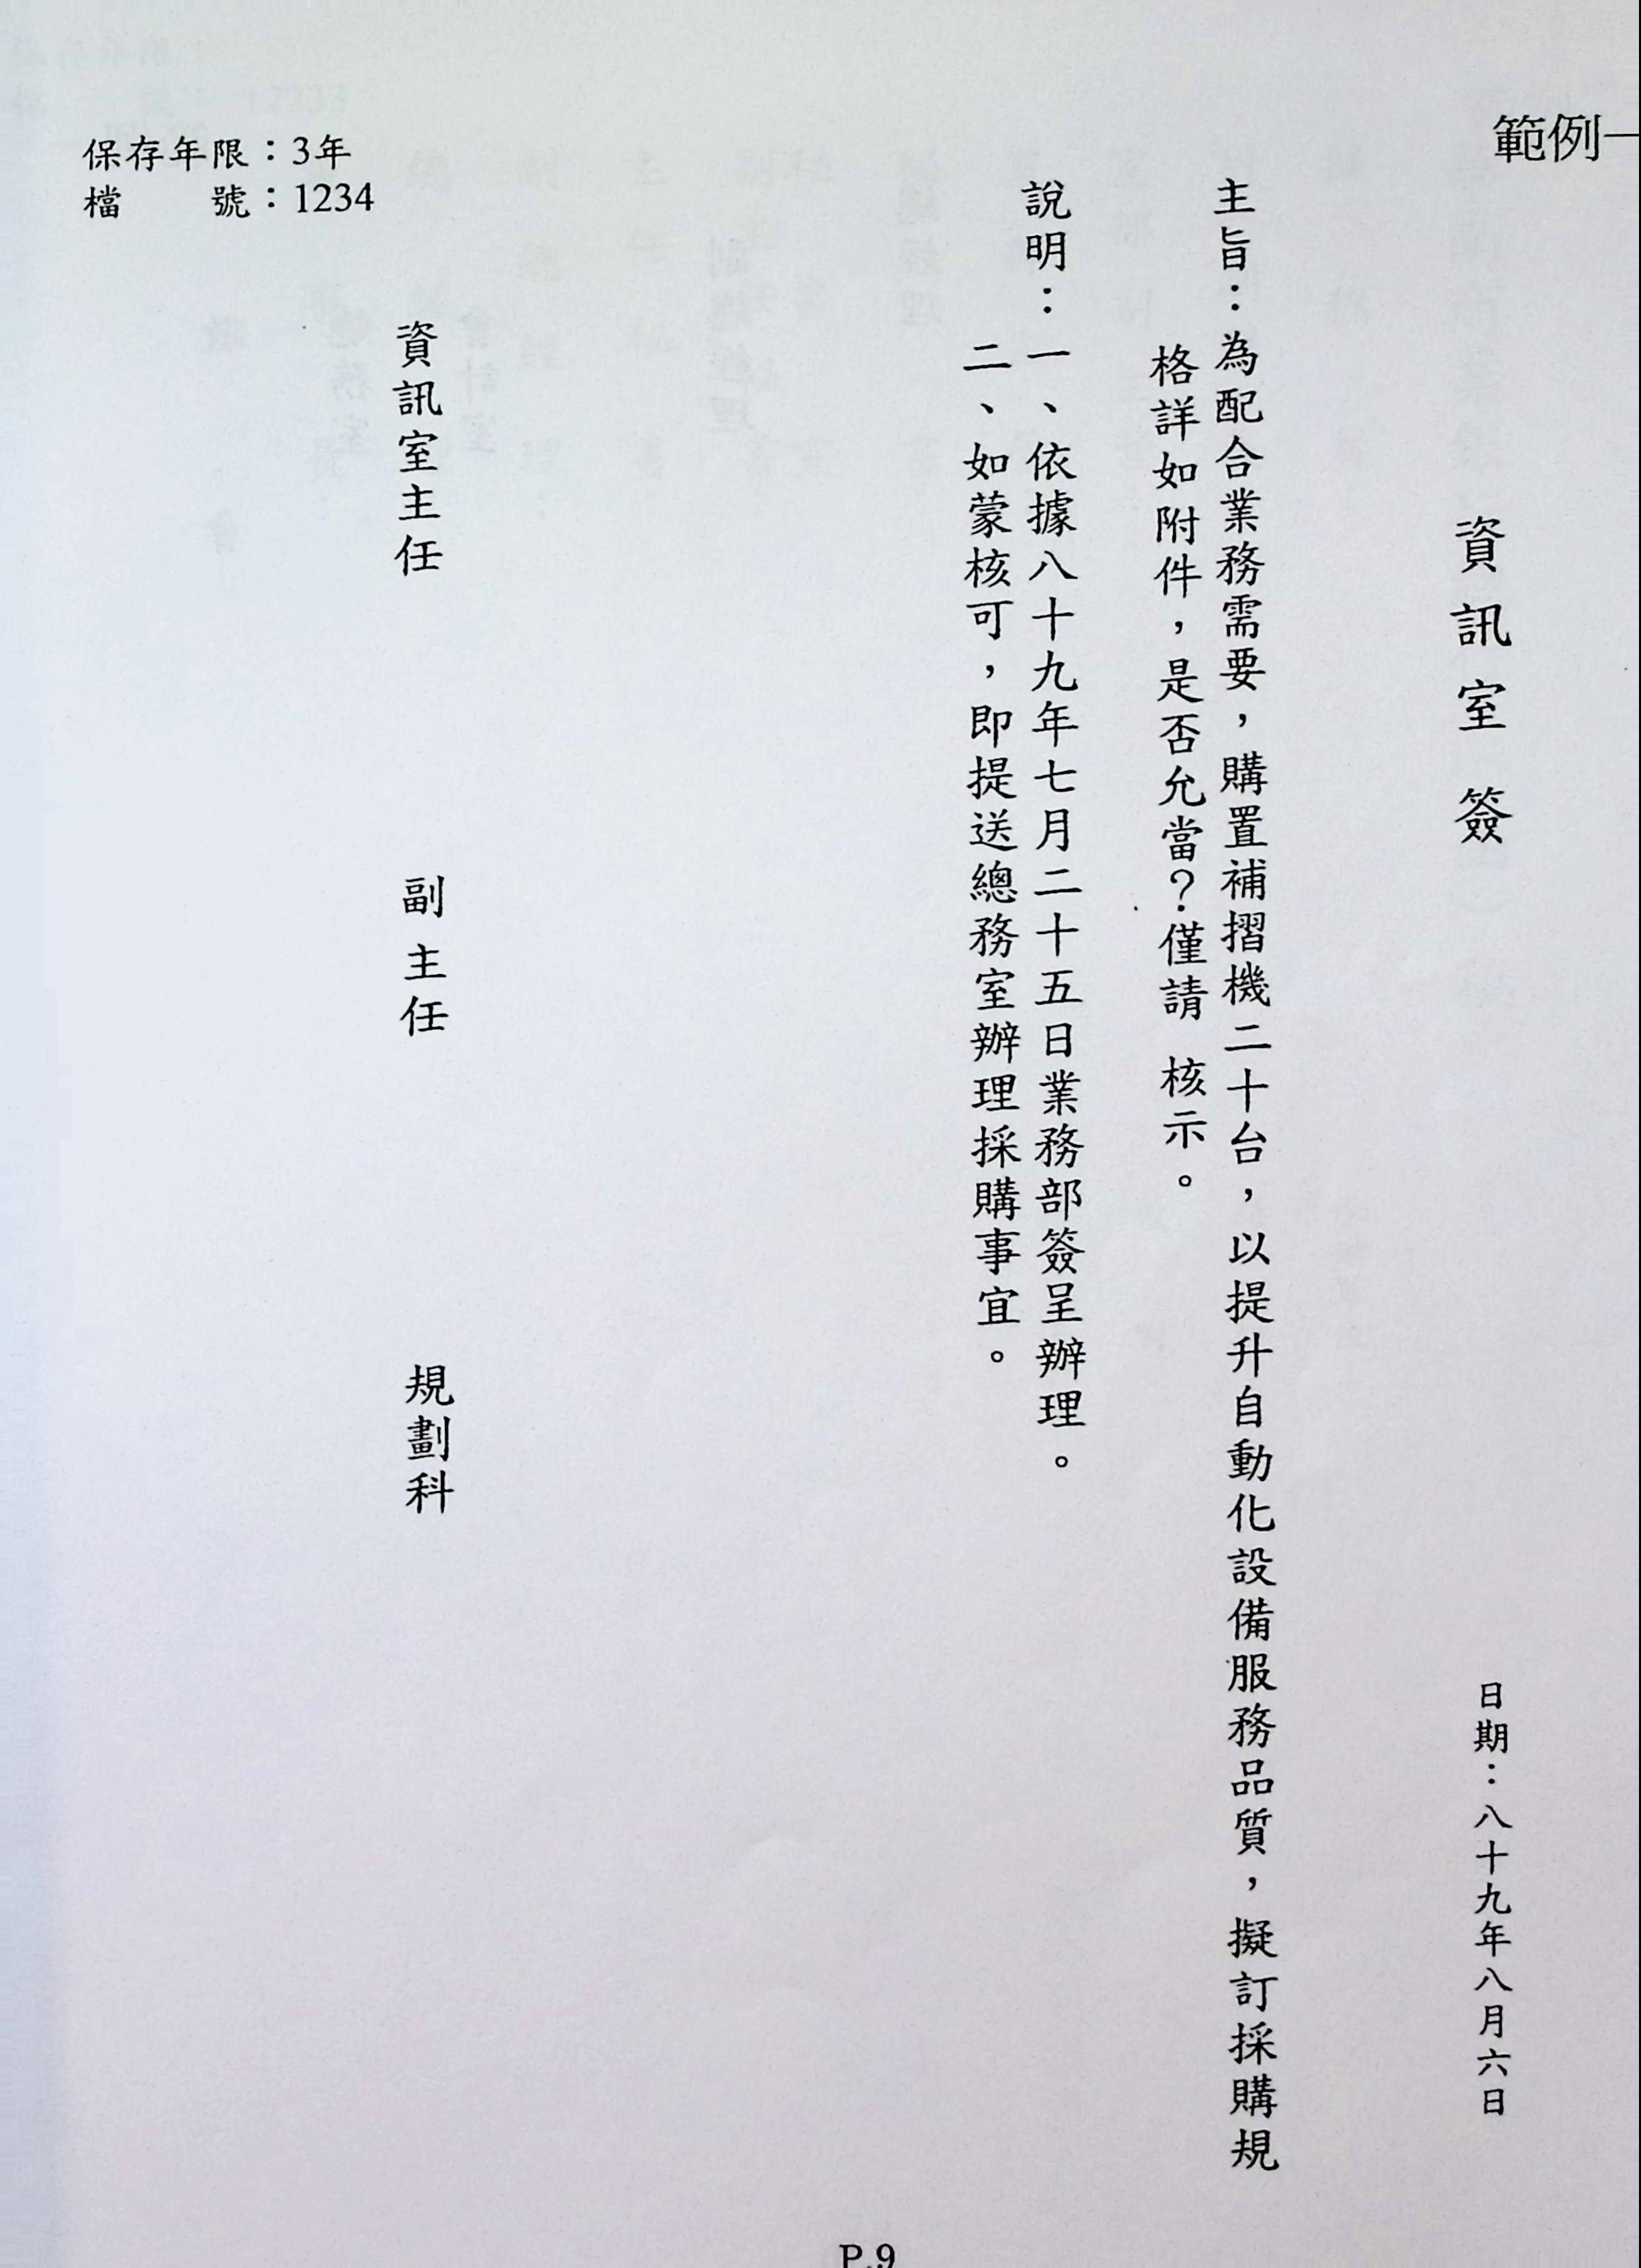 範例一
保存年限：3年
檔　　號：1234
資訊室　簽
日期：八十九年八月六日
主旨：為配合業務需要，購置補摺機二十台，以提升自動化設備服務品質，擬訂採購規
格詳如附件，是否允當？僅請　核示。
說明：一、依據八十九年七月二十五日業務部簽呈辦理。
二、如蒙核可，即提送總務室辦理採購事宜。
資訊室主任　　副主任　　規劃科
P.9